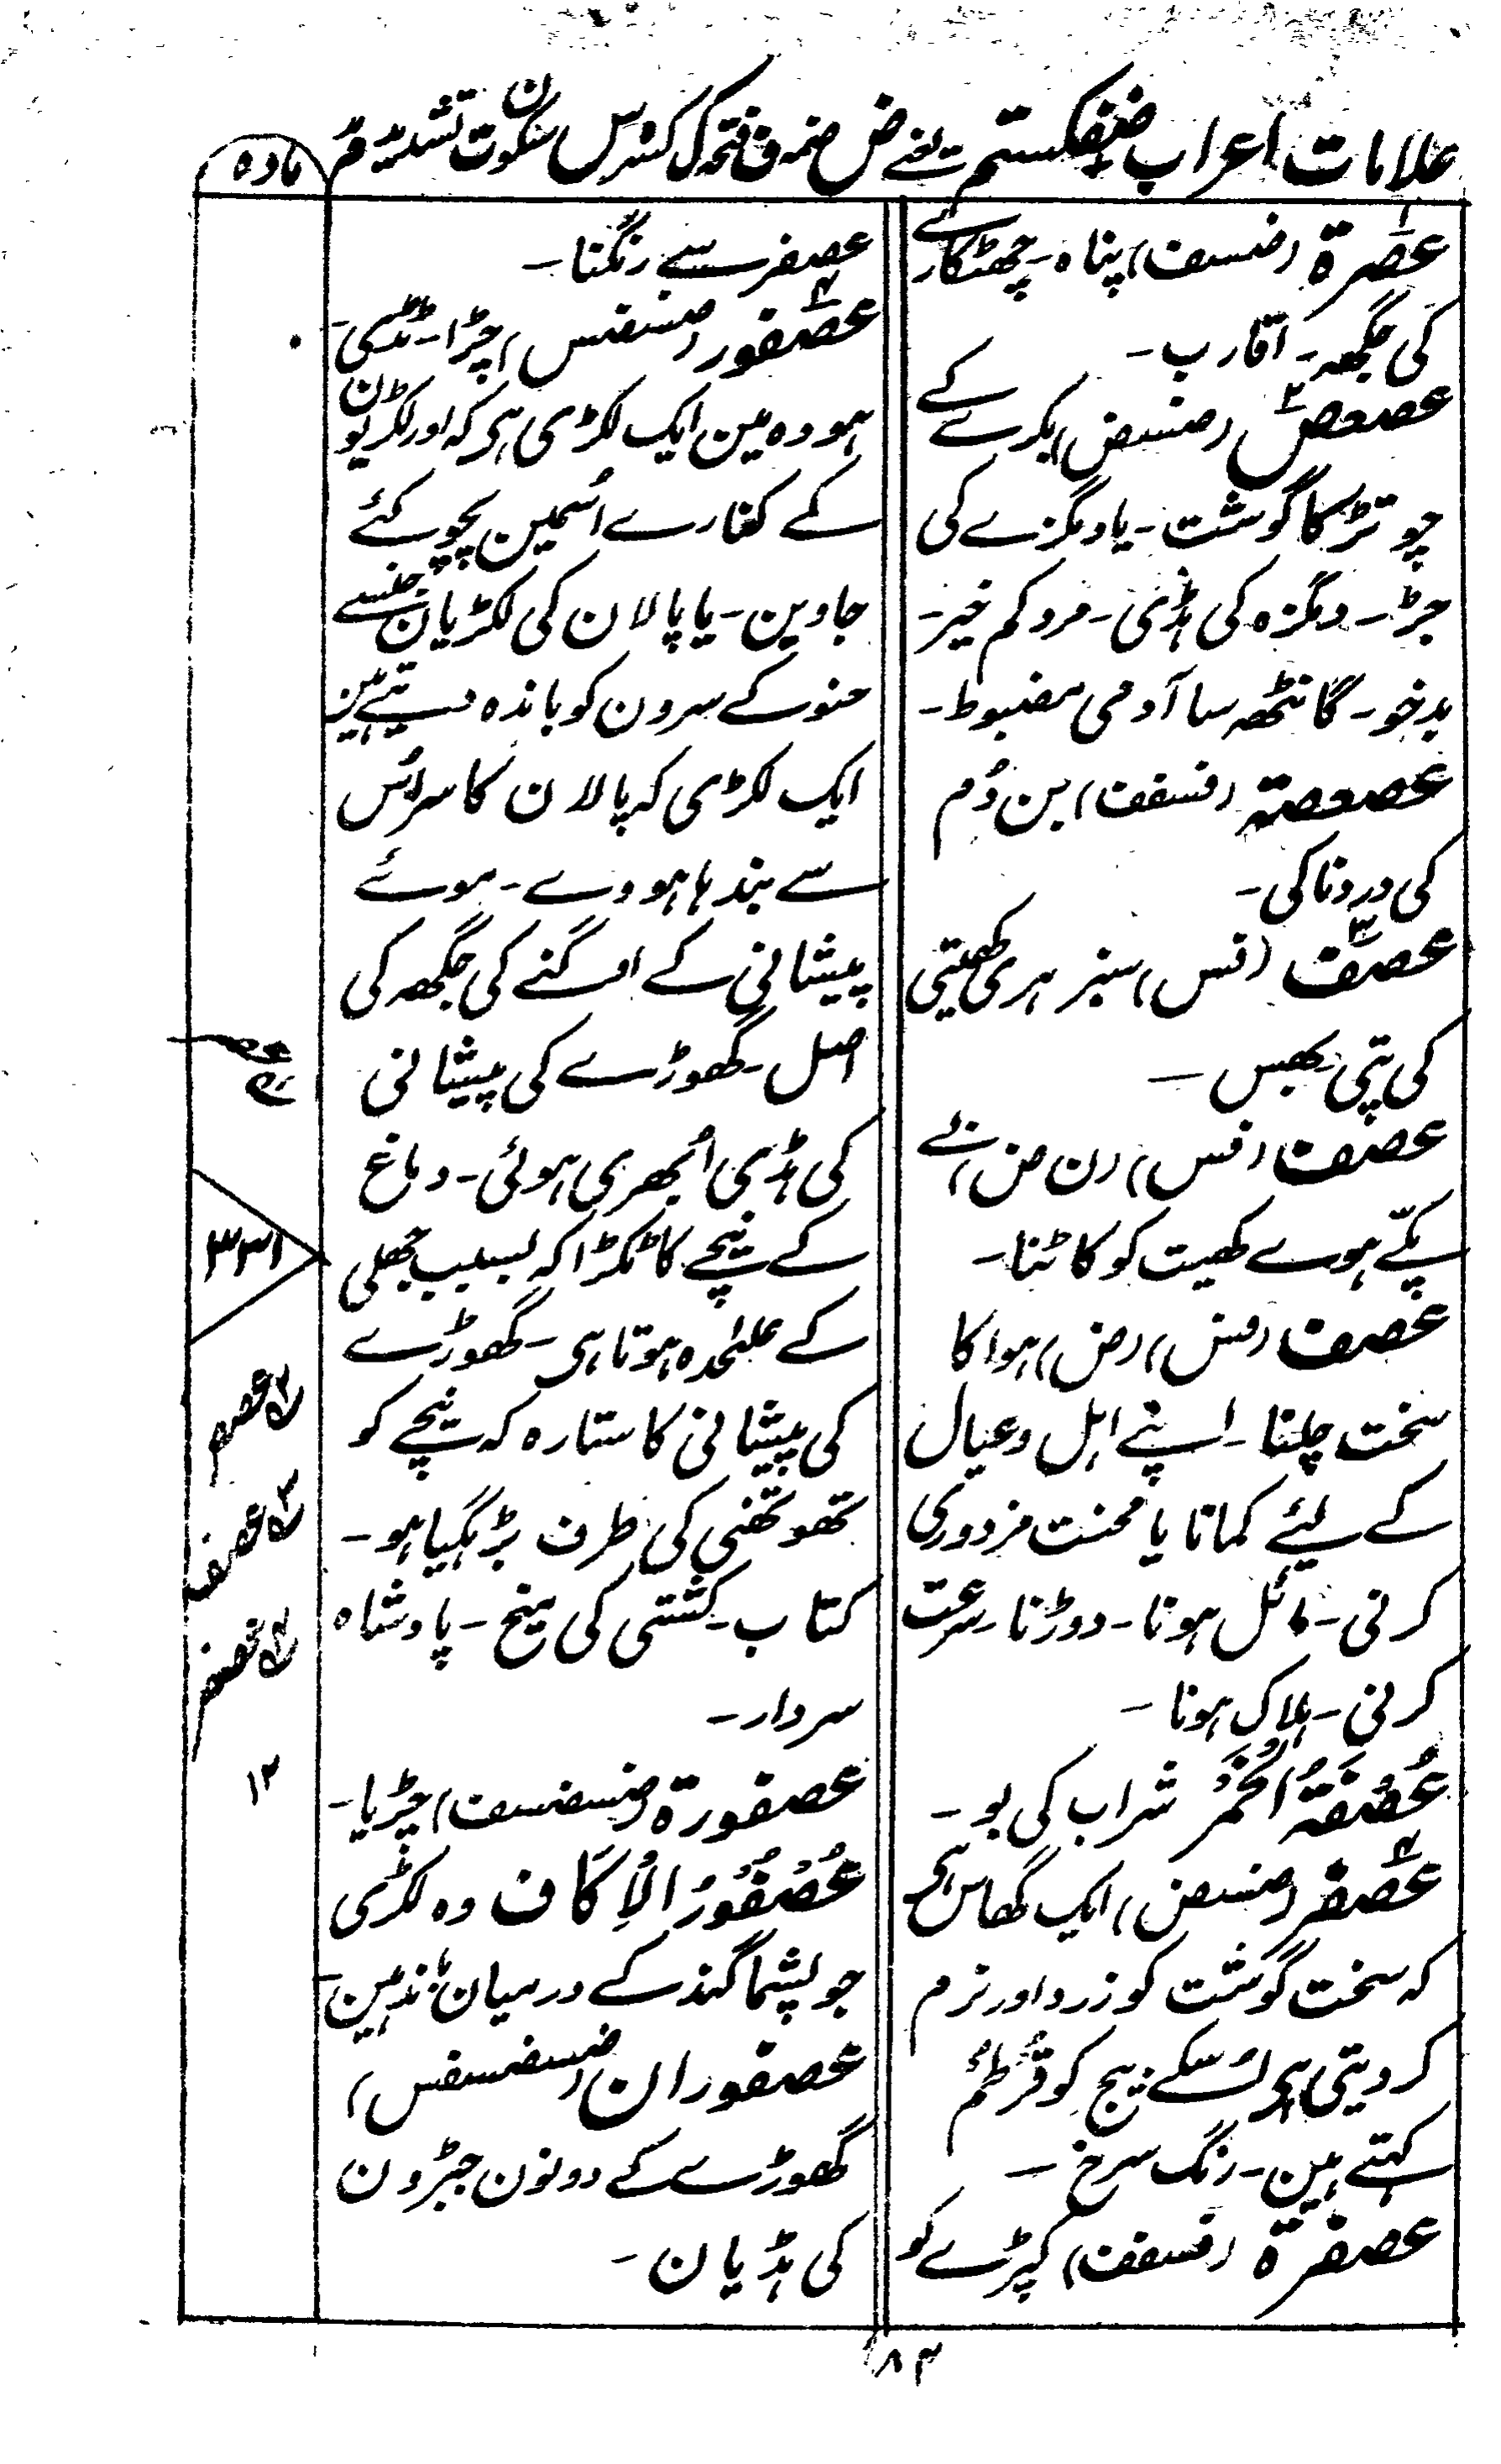 علامات اعراب ضفکستم یعنے ض ضمہ ف فتحہ ک کسرہ س سکون ت تشدید م
مادہ
عصرة (ضسف) پناہ۔ چھٹکارے
کی جگھہ۔ اقارب۔
عصعص (ضسض) بکرے کے
چوتڑ کا گوشت۔ یا دمگزے کی
جڑ۔ دمگزہ کی ہڈی۔ مرد کم خیر۔
بدخو۔ گانٹھہ سا آدمی مضبوط۔
عصعصة (فسفف) بن دُم
کی دردناکی۔
عصف (فس) سبز ہری کھیتی
کی پتی بھس۔
عصف (فس) (ن ض)
پکّے ہوے کھیت کو کاٹنا۔
عصف (فس) (ض) ہوا کا
سخت چلنا۔ اپنے اہل و عیال
کے لیئے کمانا یا محنت مزدوری
کرنی۔ مائل ہونا۔ دوڑنا۔ سرعت
کرنی۔ ہلاک ہونا۔
عُصْفَةُ الْخَمْرِ شراب کی بو۔
عصفر (ضسض) ایک گھاس ہی
کہ سخت گوشت کو زرد اور نرم
کر دیتی ہی اسکے بیج کو قُرْطُمْ
کہتے ہین۔ رنگ سرخ۔
عصفرة (فسفف) کپڑے کو
عصفر سے رنگنا۔
عصفور (ضسضس) چڑا۔ ٹڈی۔
ہودہ مین ایک لکڑی ہی کہ اور لکڑیون
کے کنارے اُسمین بچو کئے
جاوین۔ یا پالان کی لکڑیان جنسے
حنو کے سرون کو باندہ دیتے ہین
ایک لکڑی کہ پالان کا سر اُس
سے بندہا ہووے۔ موئے
پیشانی کے اوگنے کی جگھہ کی
اصل۔ گھوڑے کی پیشانی
کی ہڈی اُبھری ہوئی۔ دماغ
کے نیچے کا ٹکڑا کہ بسبب جھلی
کے علحدہ ہوتا ہی۔ گھوڑے
کی پیشانی کا ستارہ کہ نیچے کو
تھوتھنی کی طرف بڑہگیا ہو۔
کتاب۔ کشتی کی میخ۔ پادشاہ
سردار۔
عصفورة (ضسضسف) چڑیا۔
عُصْفُوْرُ الْاِکَاف وہ لکڑی
جو پشماگند کے درمیان باندہین۔
عصفوران (ضسضسفس)
گھوڑے کے دونون جبڑون
کی ہڈیان۔
عصعص
۳۳۱
عصم
عصف
عصفر
۱۲
۸۴